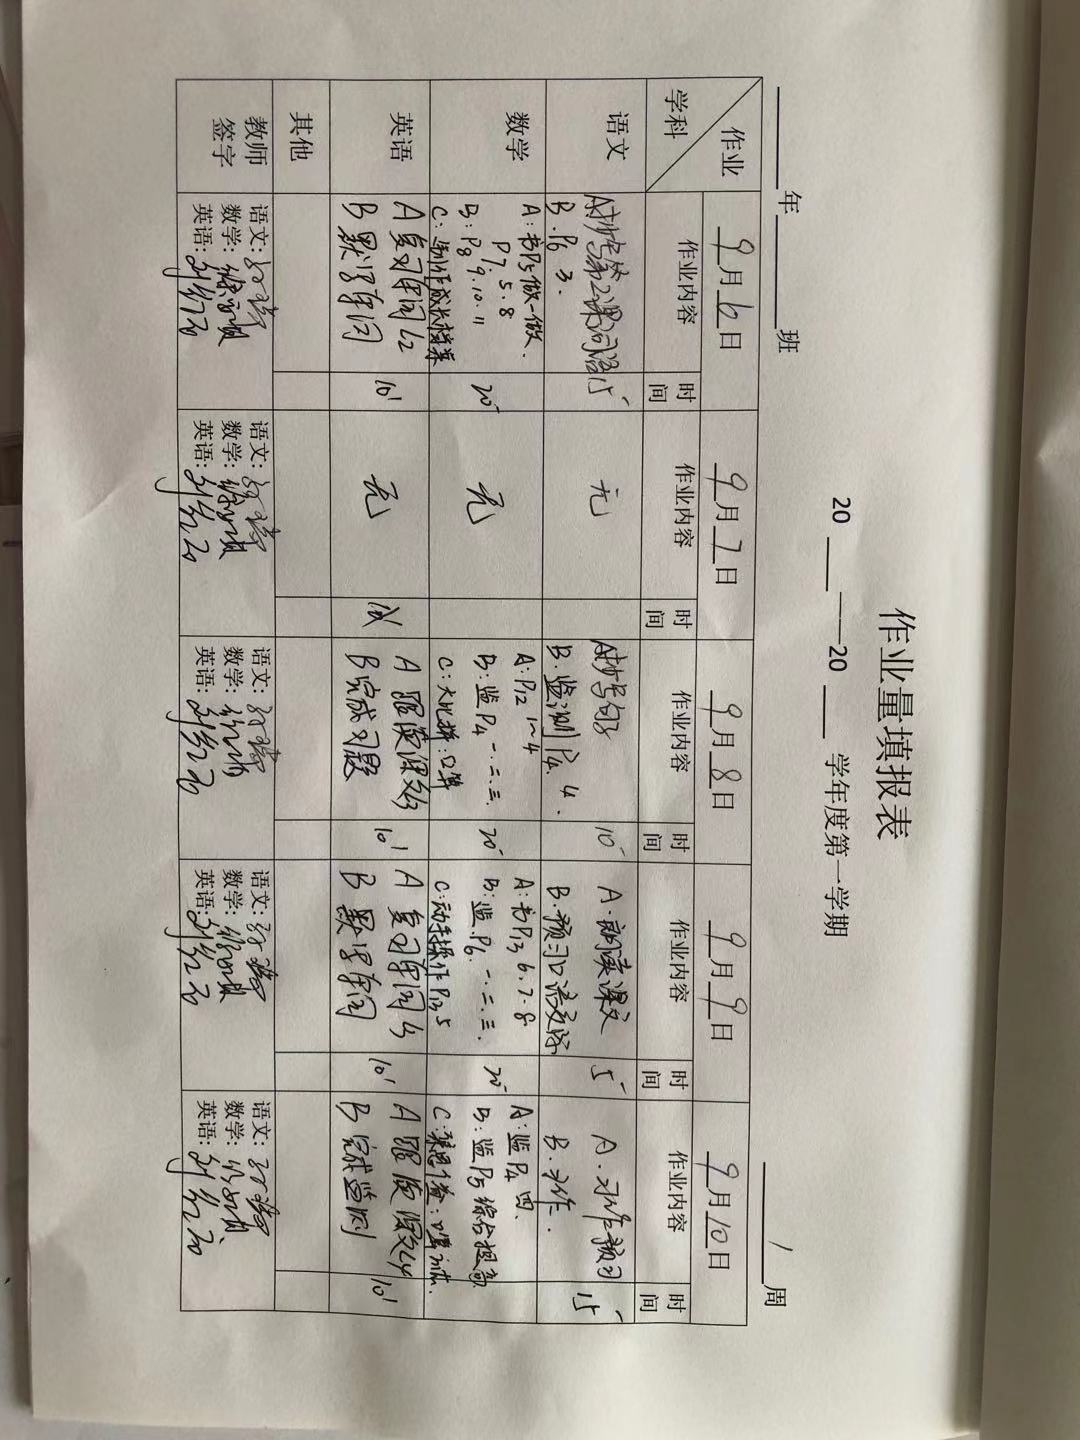 作业量填报表
20 ——20 学年度第一学期
年 班 1 周
作业 9月6日 9月7日 9月8日 9月9日 9月10日
学科 作业内容 时间 作业内容 时间 作业内容 时间 作业内容 时间 作业内容 时间
语文 A抄写第2课词语 15′ 无 A抄写句子 10′ A.朗读课文 5′ A.习作预习 15′
B.P6 3. B.监测P4. 4. B.预习口语交际 B.习作.
数学 A:书P5做一做. 20′ 无 A:P12 1~4 20′ A:书P13 6.7.8 20′ A:监P4 四.
P7.5.8 B:监P4 一.二.三. B:监P6 一.二.三. B:监P5 综合提高
B:P8 9.10.11 C:大比拼:口算 C:动手操作P13 5
C:制作成长档案
英语 A 复习单词L2 10′ 无 A 跟读课文L3 10′ A 复习单词L3 10′ A 跟读课文L4 10′
B 默写单词 B 完成习题 B 默写单词 B 完成监测
其他
教师签字 语文: 语文: 语文: 语文: 语文:
数学: 数学: 数学: 数学: 数学:
英语: 英语: 英语: 英语: 英语: